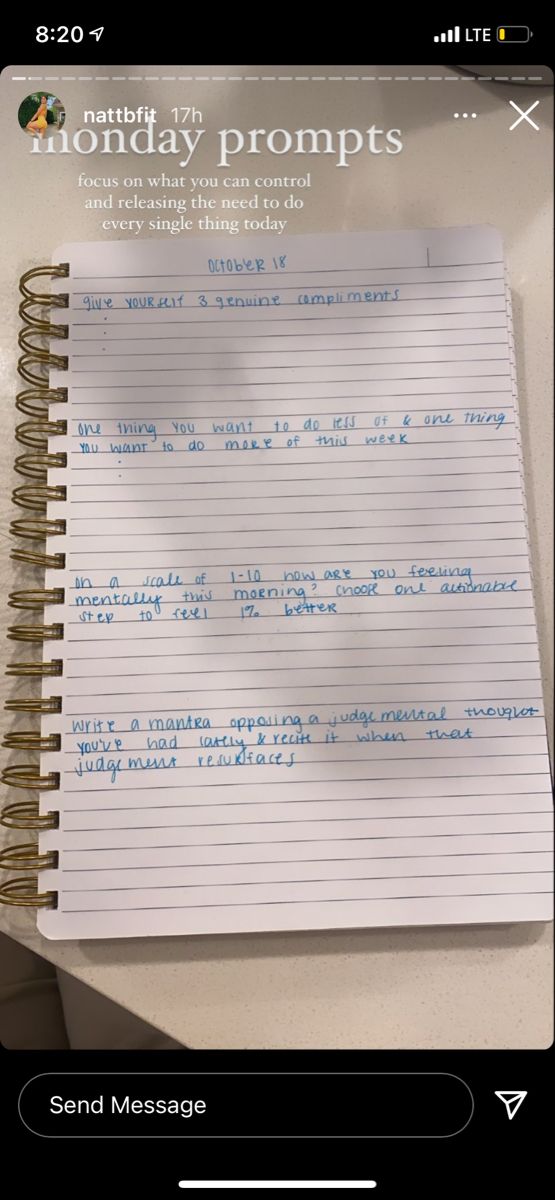 8:20
LTE
nattbfit 17h
monday prompts
focus on what you can control
and releasing the need to do
every single thing today
OCTOBER 18
give YOURself 3 genuine compliments
one thing you want to do less of & one thing
you want to do more of this week
on a scale of 1-10 how are you feeling
mentally this morning? choose one actionable
step to feel 1% better
write a mantra opposing a judgemental thought
you've had lately & recite it when that
judgement resurfaces
Send Message